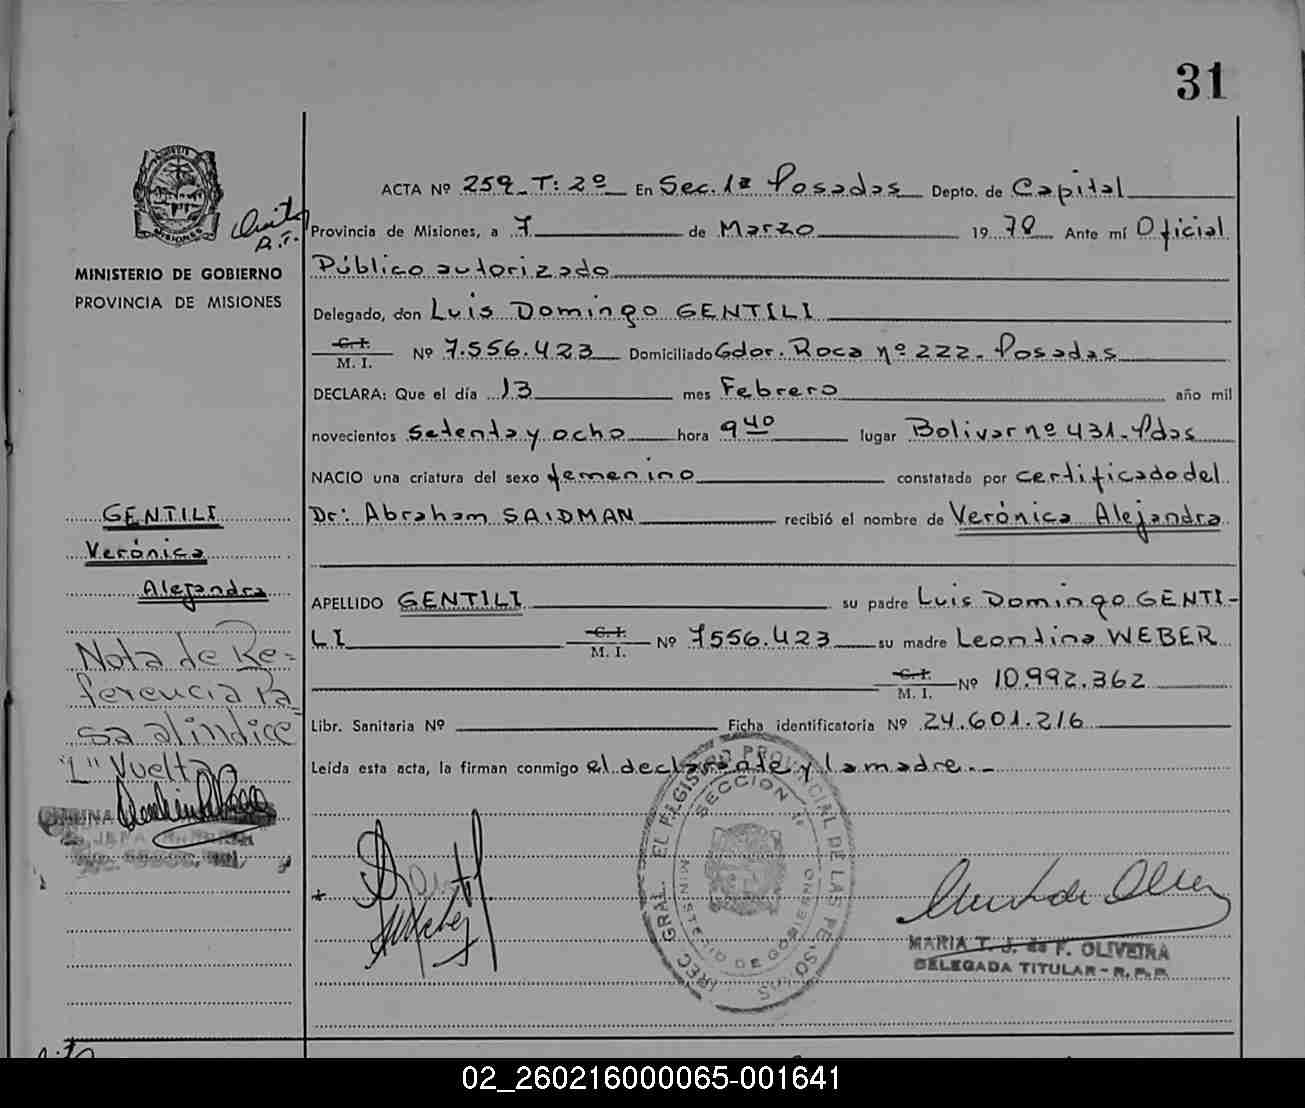 31
ACTA Nº 259 - T: 2º En Sec. 1ª Posadas Depto. de Capital
Provincia de Misiones, a 7 de Marzo 1978 Ante mí Oficial
Público autorizado
MINISTERIO DE GOBIERNO
PROVINCIA DE MISIONES
Delegado, don Luis Domingo GENTILI
C. I.
M. I. Nº 7.556.423 Domiciliado Gdor. Roca nº 222 - Posadas
DECLARA: Que el día 13 mes Febrero año mil
novecientos setenta y ocho hora 9 40 lugar Bolivar nº 431 - Pdas
NACIO una criatura del sexo femenino constatada por certificado del
Dr: Abraham SAIDMAN recibió el nombre de Verónica Alejandra
GENTILI
Verónica
Alejandra
APELLIDO GENTILI su padre Luis Domingo GENTI-
LI C. I. M. I. Nº 7556.423 su madre Leontina WEBER
C. I. M. I. Nº 10.992.362
Libr. Sanitaria Nº Ficha identificatoria Nº 24.601.216
Leída esta acta, la firman conmigo el declarante y la madre.-
Nota de Re-
ferencia Pa-
sa al indice
"L" Vuelta
DIREC. GRAL. EL REGISTRO PROVINCIAL DE LAS PERSONAS
SECCION 1ª
MINISTERIO DE GOBIERNO
MARIA T. J. de F. OLIVEIRA
DELEGADA TITULAR - R.P.P.
02_260216000065-001641